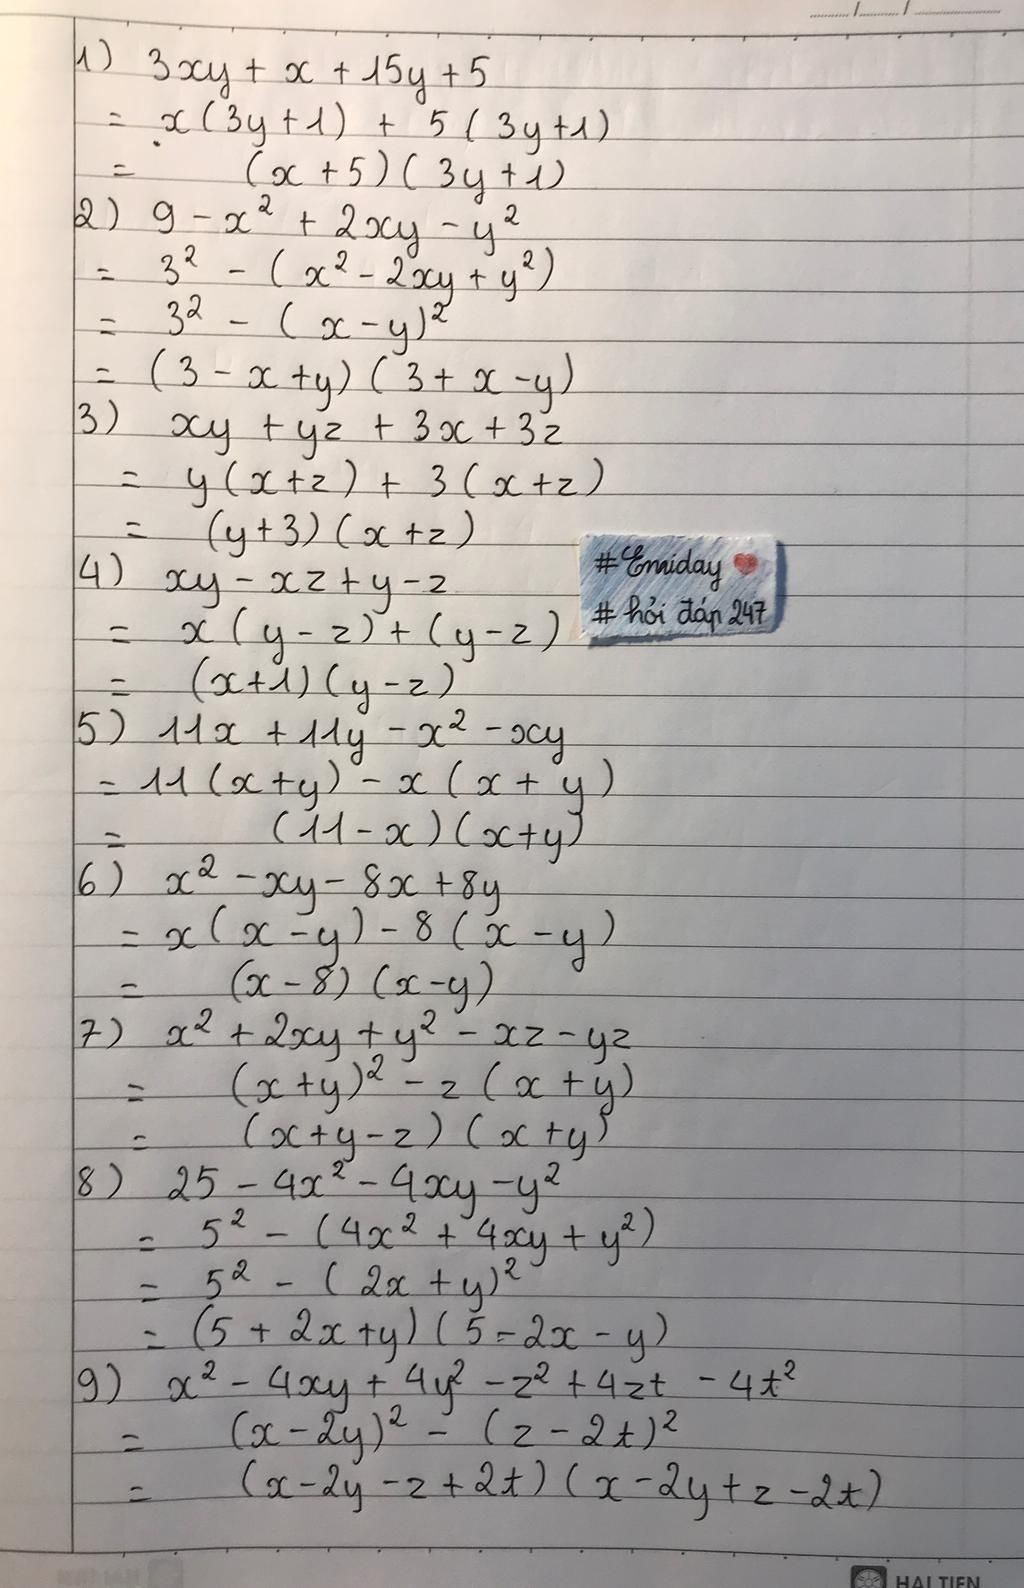 1) 3xy + x + 15y + 5
= x(3y+1) + 5(3y+1)
= (x+5)(3y+1)
2) 9 - x² + 2xy - y²
= 3² - (x² - 2xy + y²)
= 3² - (x-y)²
= (3 - x+y)(3 + x - y)
3) xy + yz + 3x + 3z
= y(x+z) + 3(x+z)
= (y+3)(x+z)
#Emiday ❤
4) xy - xz + y - z
# hỏi đáp 247
= x(y-z) + (y-z)
= (x+1)(y-z)
5) 11x + 11y - x² - xy
= 11(x+y) - x(x+y)
= (11-x)(x+y)
6) x² - xy - 8x + 8y
= x(x-y) - 8(x-y)
= (x-8)(x-y)
7) x² + 2xy + y² - xz - yz
= (x+y)² - z(x+y)
= (x+y-z)(x+y)
8) 25 - 4x² - 4xy - y²
= 5² - (4x² + 4xy + y²)
= 5² - (2x+y)²
= (5 + 2x+y)(5 - 2x - y)
9) x² - 4xy + 4y² - z² + 4zt - 4t²
= (x-2y)² - (z-2t)²
= (x-2y-z+2t)(x-2y+z-2t)
HẢI TIẾN